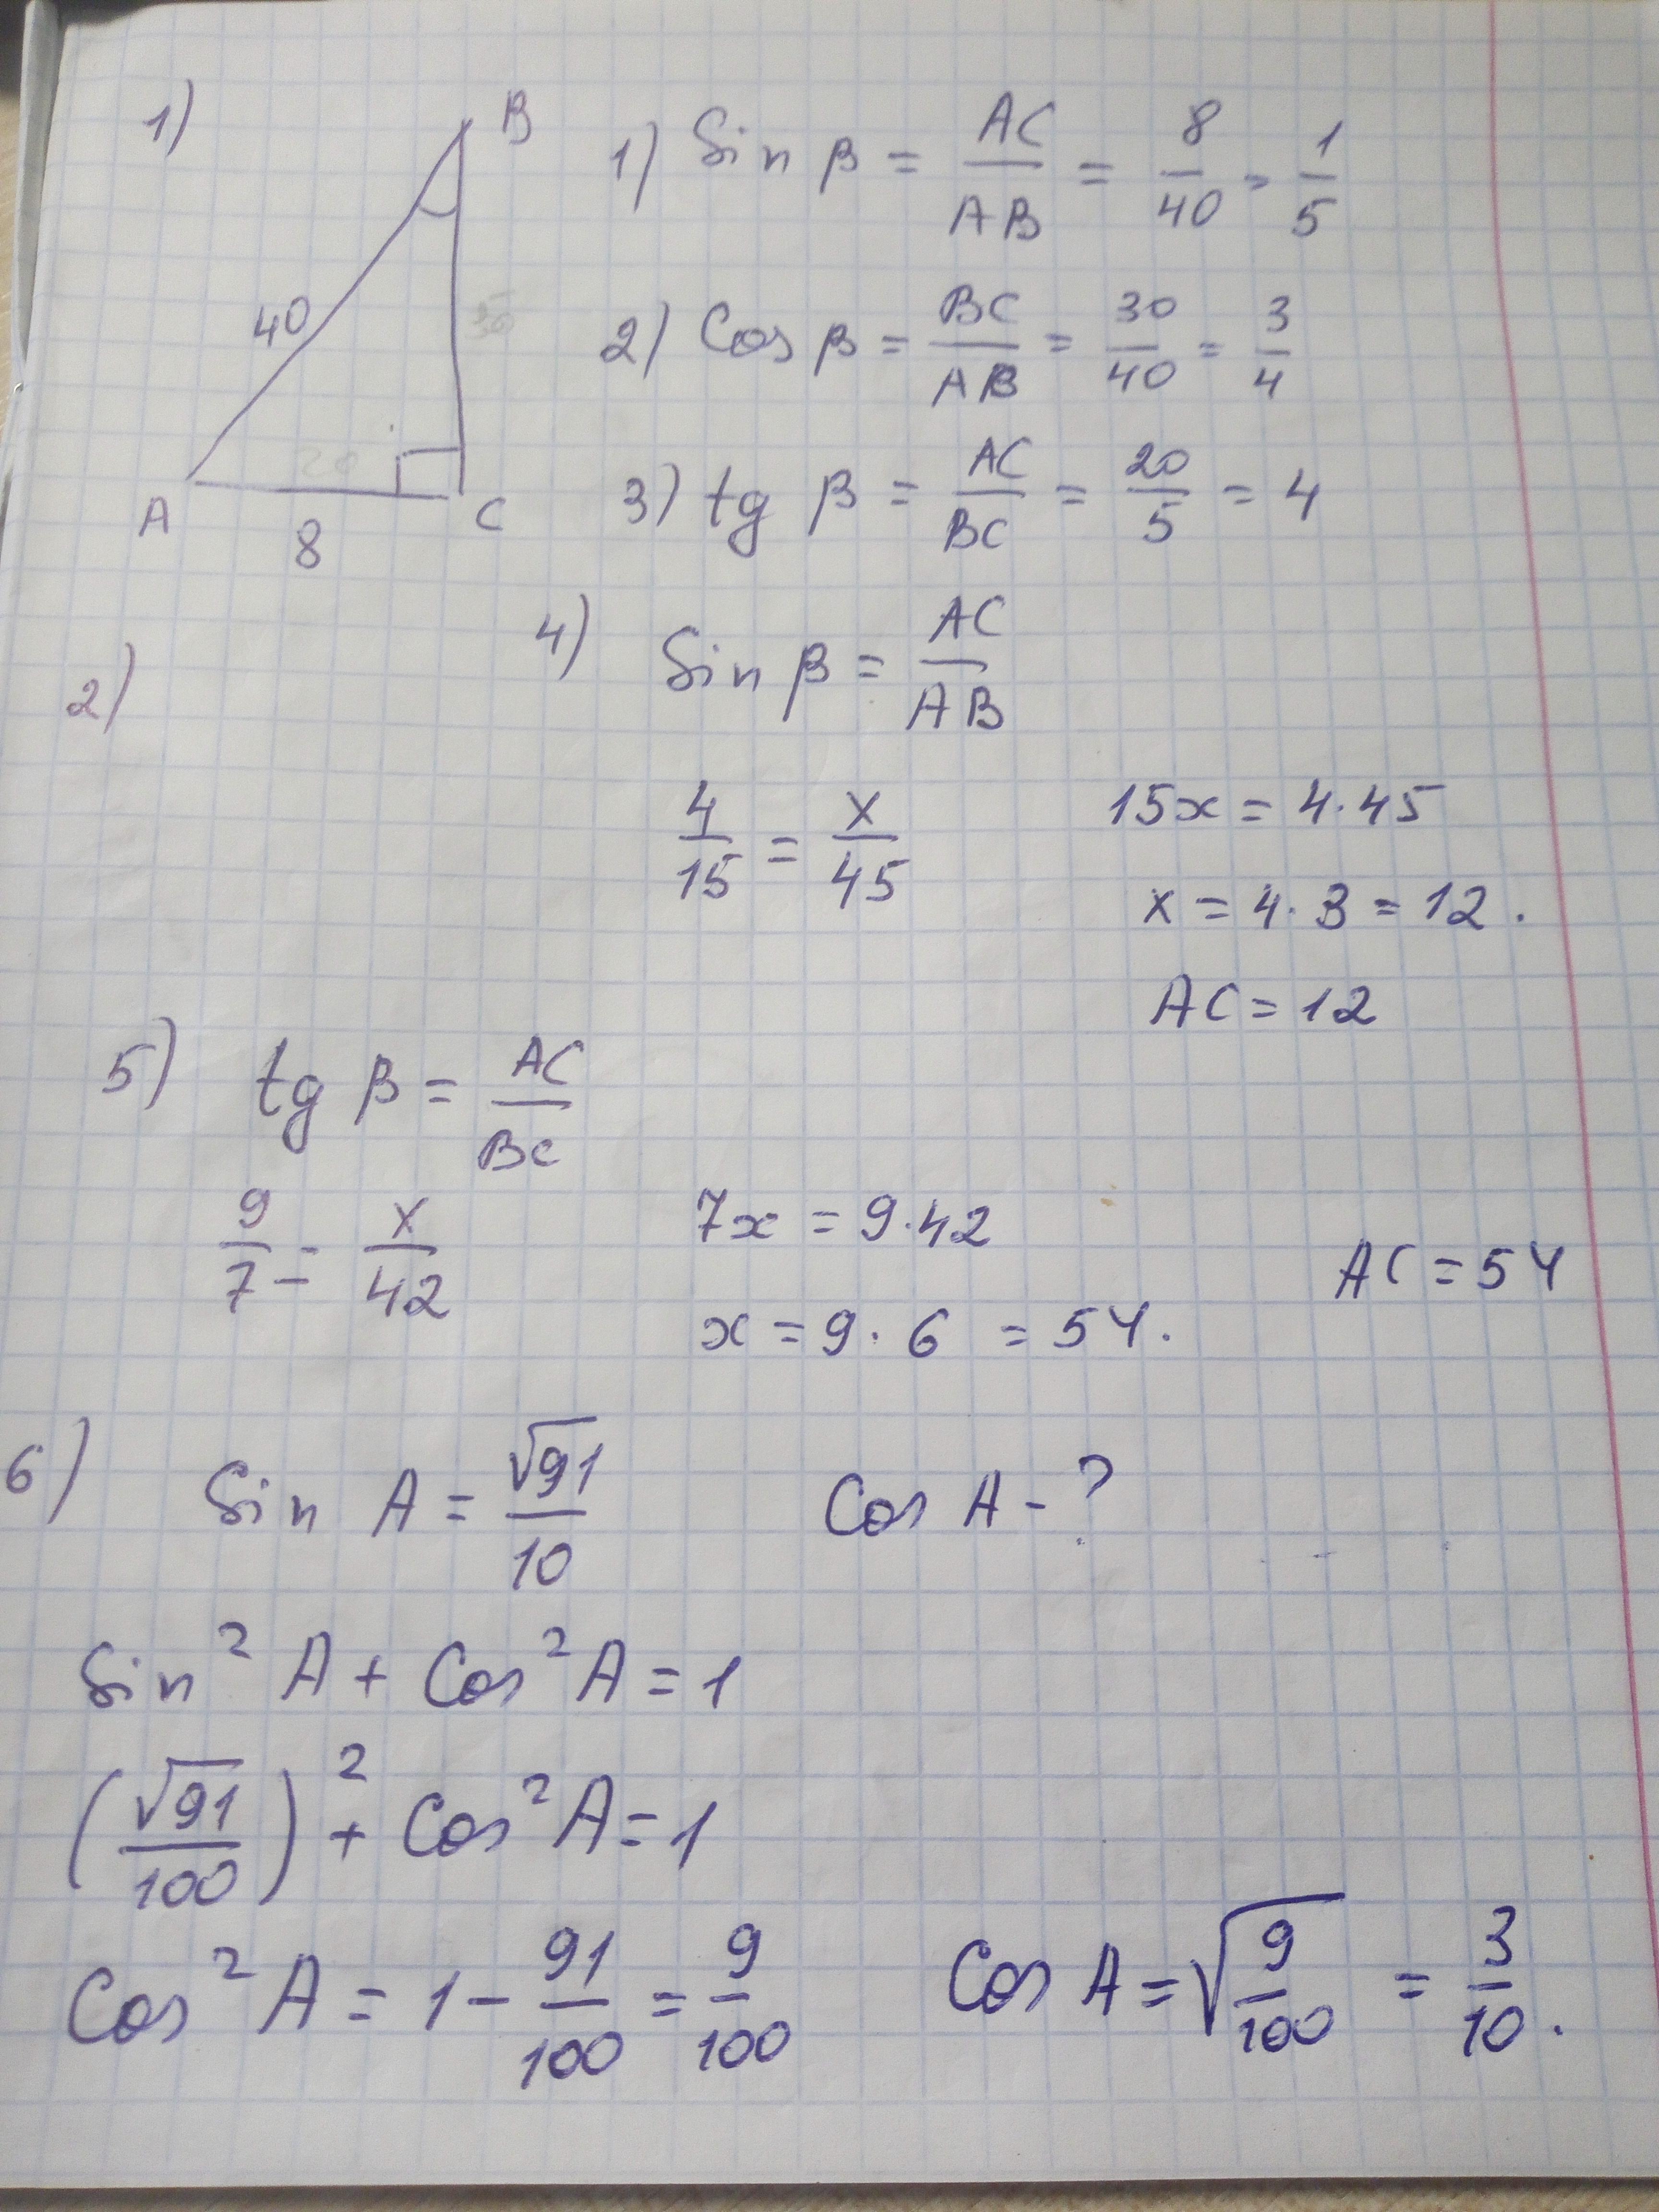 1)
B
40
30
20
A
8
C
1) Sin β = AC/AB = 8/40 = 1/5
2) Cos β = BC/AB = 30/40 = 3/4
3) tg β = AC/BC = 20/5 = 4
2)
4) Sin β = AC/AB
4/15 = x/45
15x = 4·45
x = 4·3 = 12.
AC = 12
5) tg β = AC/BC
9/7 = x/42
7x = 9·42
x = 9·6 = 54.
AC = 54
6) Sin A = √91/10 Cos A - ?
Sin² A + Cos² A = 1
(√91/100)² + Cos² A = 1
Cos² A = 1 - 91/100 = 9/100
Cos A = √9/100 = 3/10.